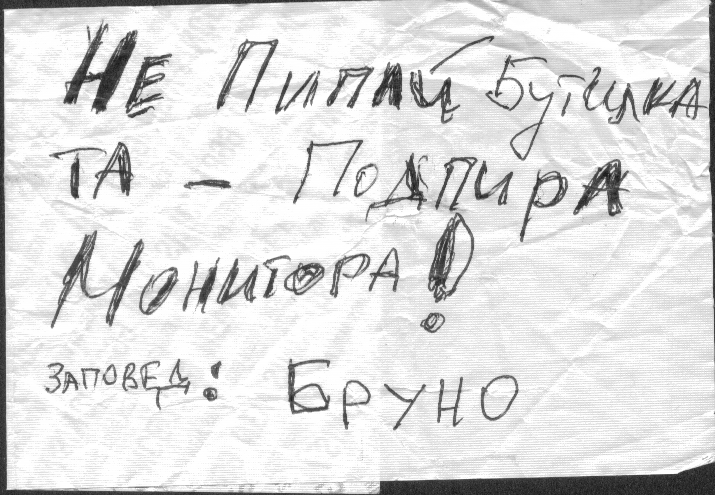 Не Пипай Бутилка
та – Подпира
Монитора!
Заповед: Бруно